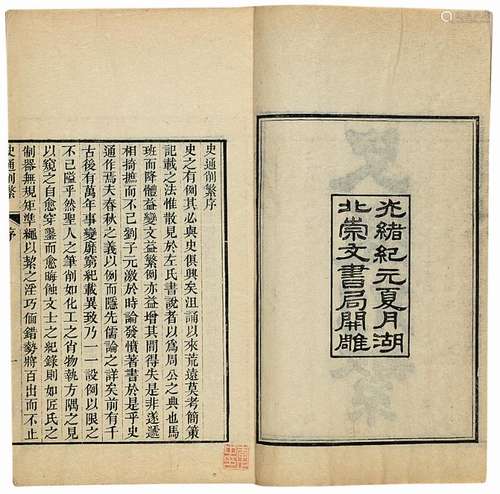 光緒紀元夏月湖
北崇文書局開雕
史通削繁序
史之有例其必與史俱興矣沮誦以來荒遠莫考簡策
記載之法惟散見於左氏書說者以爲周公之典也馬
班而降體益變文益繁例亦益增其間得失是非遂遞
相掎摭而不已劉子元激於時論發憤著書於是乎史
通作焉夫春秋之義以例而隱先儒論之詳矣前有千
古後有萬年事變靡窮紀載異致乃一一設例以限之
不已隘乎然聖人之筆削如化工之肖物執方隅之見
以窺之自愈穿鑿而愈晦蝕文士之紀錄則如匠氏之
制器無規矩準繩以絜之淫巧偭錯勢將百出而不止
史通削繁 序